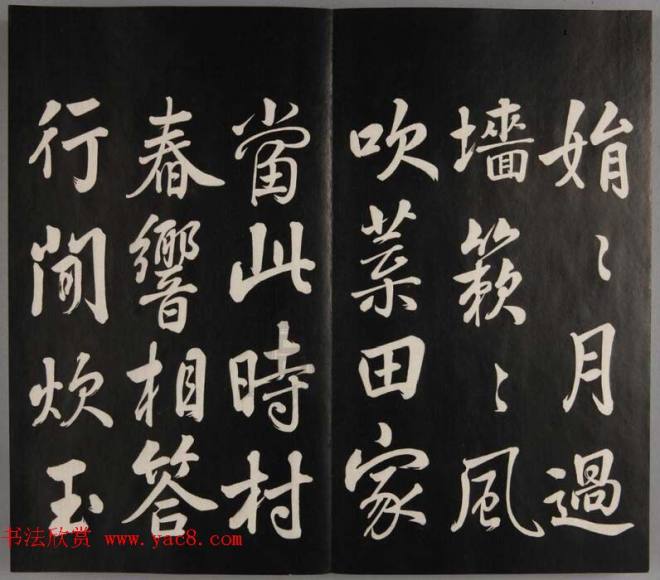 娟〻月過
墻簌〻風
吹菜田家
當此時村
舂響相答
行閒炊玉
书法欣赏 www.yac8.com